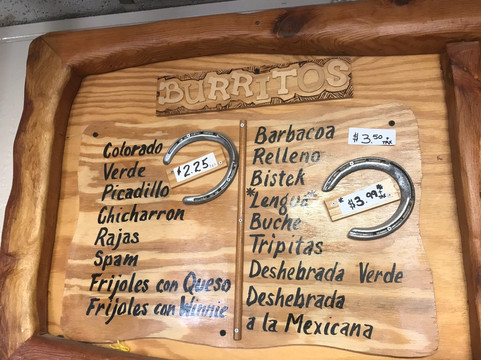 BURRITOS
Colorado
Verde
Picadillo
Chicharron
Rajas
Spam
Frijoles con Queso
Frijoles con Winnie
$2.25
Barbacoa
Relleno
Bistek
*Lengua*
Buche
Tripitas
Deshebrada Verde
Deshebrada
a la Mexicana
$3.50 + TAX
*$3.99*